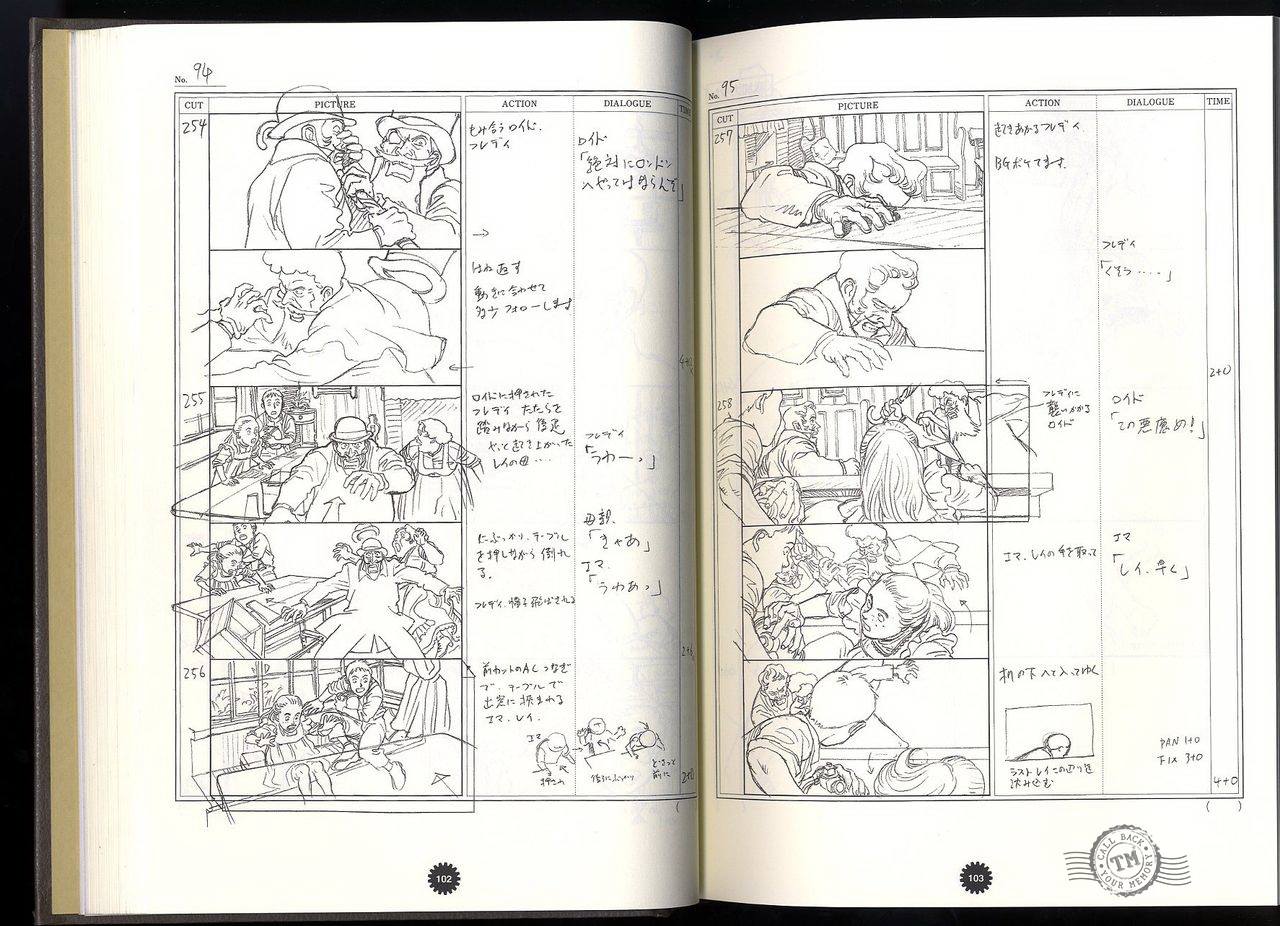 No. 94
CUT PICTURE ACTION DIALOGUE TIME
254
もみ合うロイド.
フレディ
ロイド
「絶対にロンドン
へやってはならんぞ」
→
はね返す
動きに合わせて
フォローします
4+0
255
ロイドに押された
フレディ たたらを
踏みながら後退
やっと起き上がった
レイの母‥‥
フレディ
「うわーっ」
にぶつかり、テーブル
を押しながら倒れ
る。
フレディ、椅子飛ばされる
母親.
「きゃあ」
エマ.
「うわあっ」
2+
256
前カットのACつなぎ
で、テーブルで
出窓に挟まれる
エマ、レイ.
エマ
押され
どさっと
前に
2+0
( 
102
No. 95
CUT PICTURE ACTION DIALOGUE TIME
257
起きあがるフレディ
BGボケてます.
フレディ
「くそっ‥‥」
2+0
258
フレディに
襲いかかる
ロイド
ロイド
「この悪魔め!」
エマ、レイの手を取って
エマ
「レイ、早く」
机の下へと入ってゆく
PAN 1+0
FIX 3+0
4+0
ラスト レイこの辺りを
( )
103
CALL BACK
TM
YOUR MEMORY